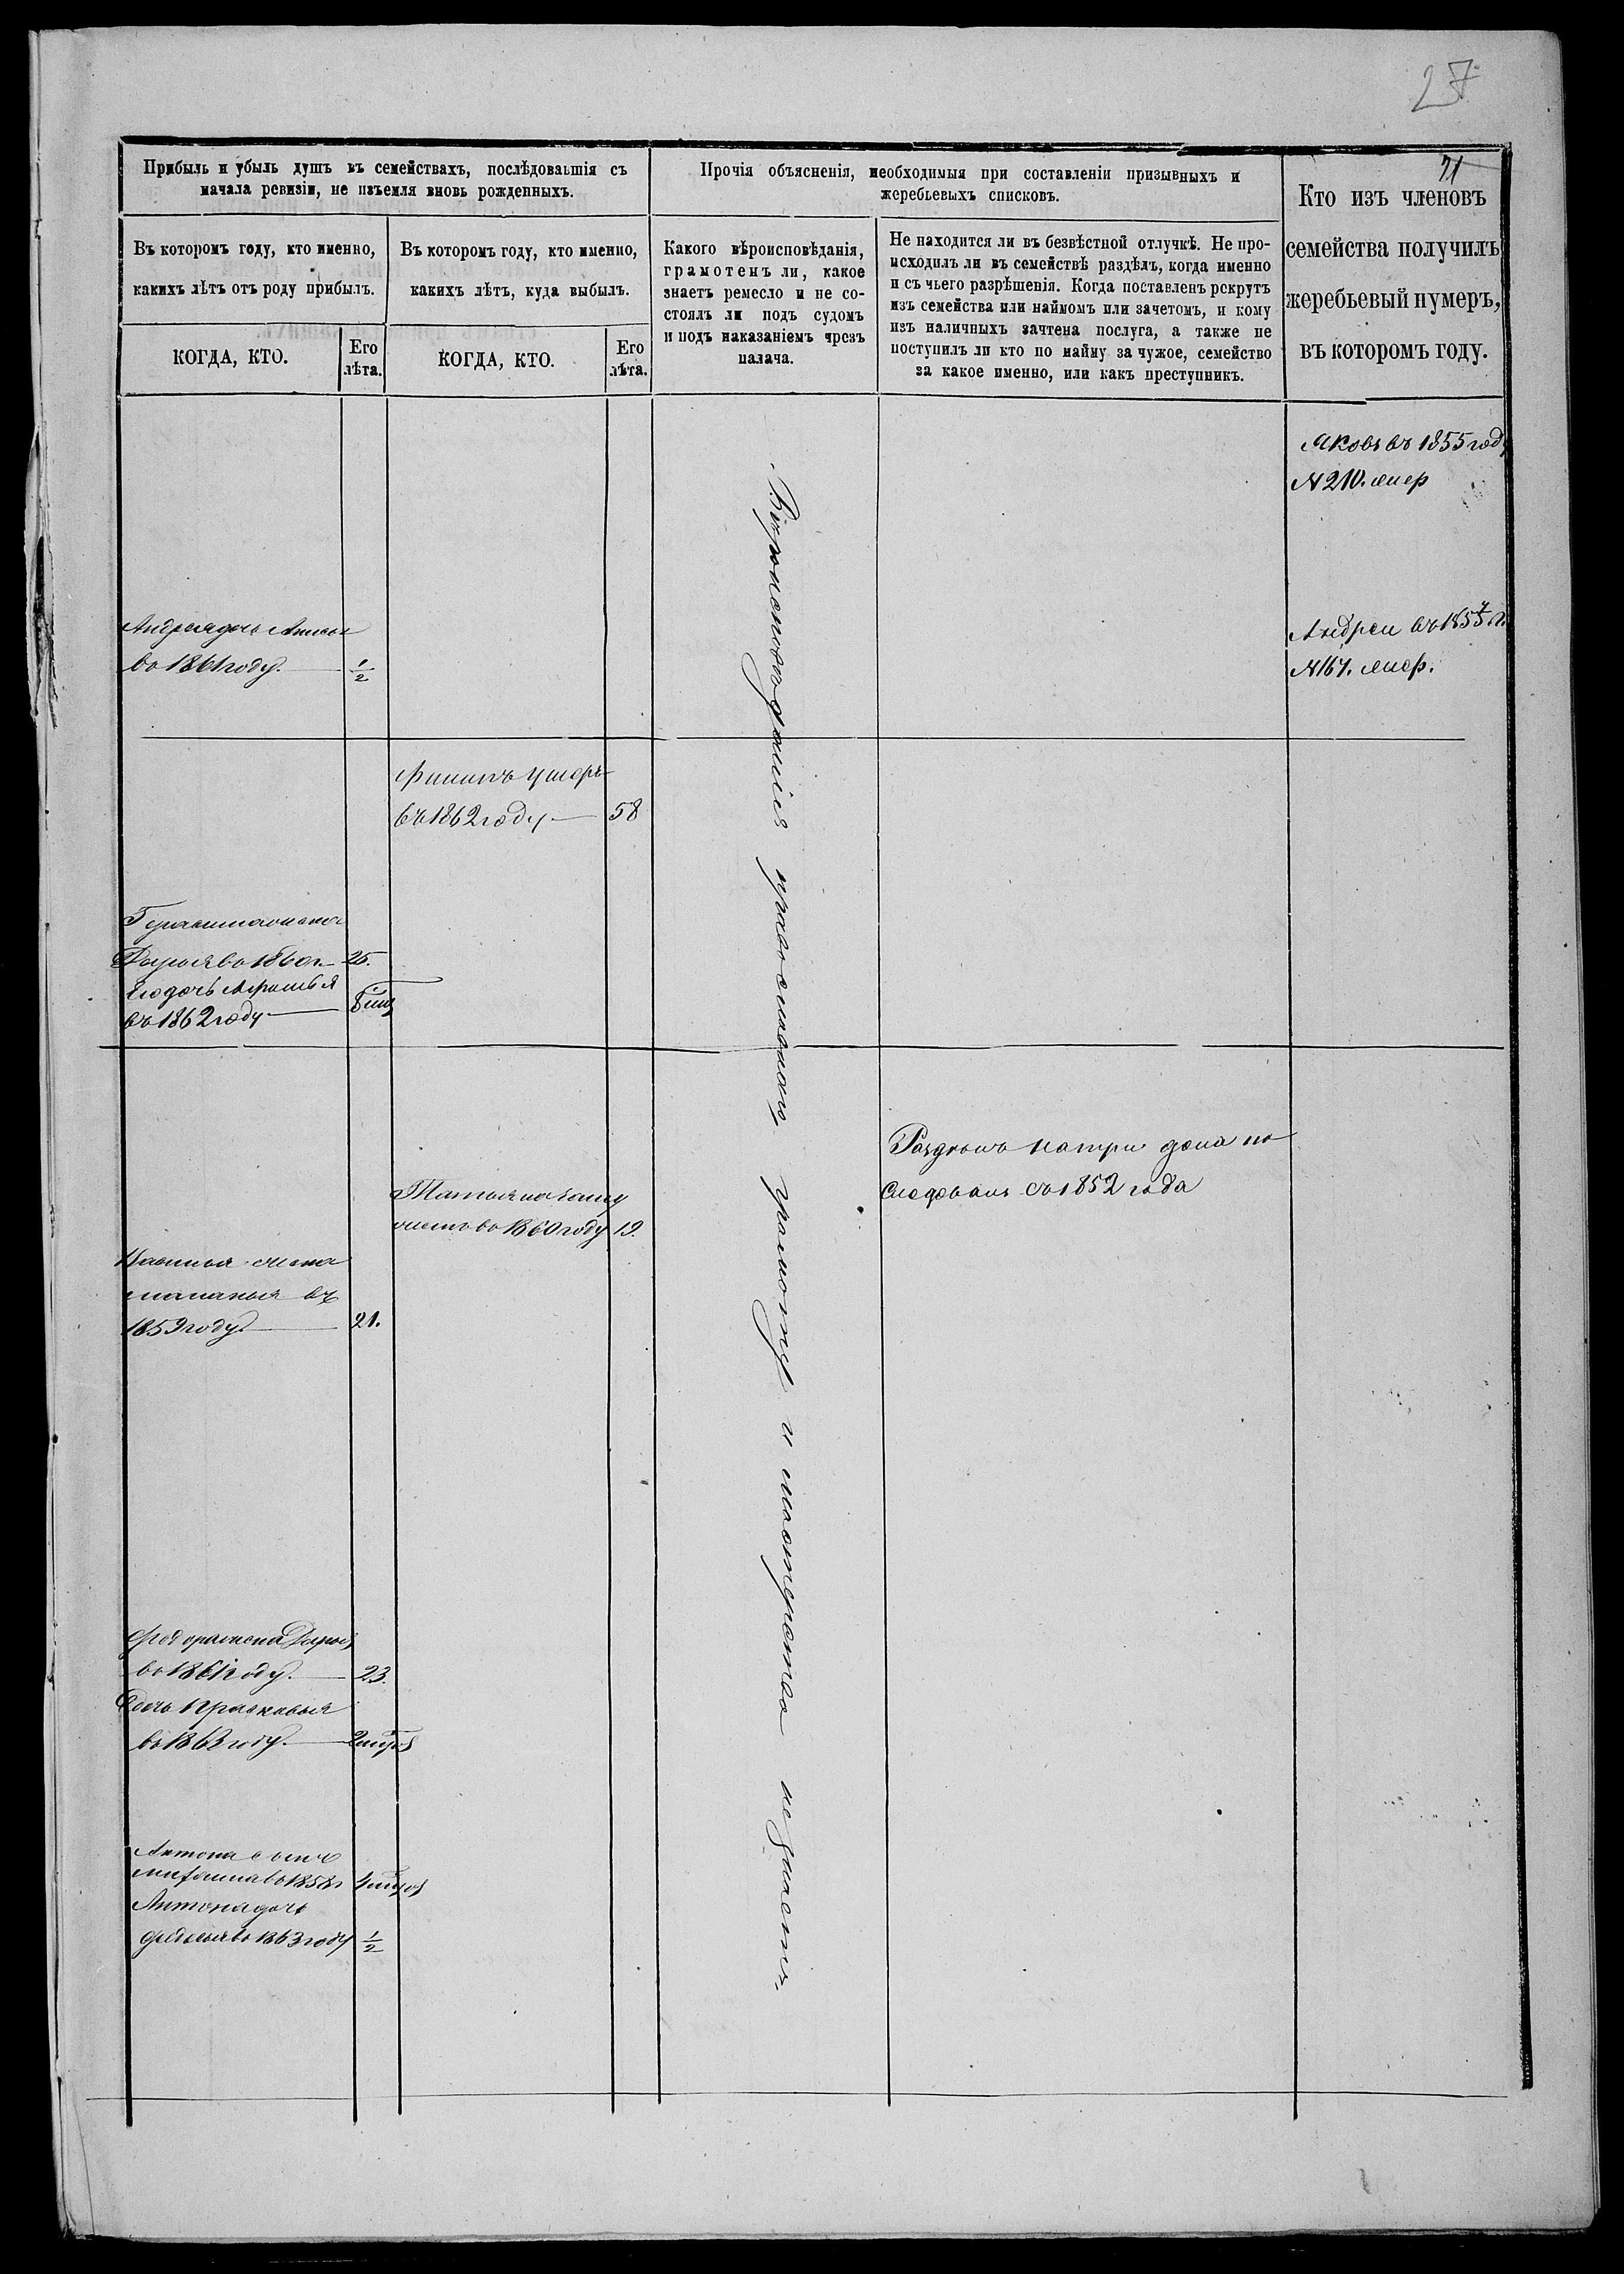 27
71
Прибыль и убыль душъ въ семействахъ, послѣдовавшія съ
начала ревизіи, не изъемля вновь рожденныхъ.
Прочія объясненія, необходимыя при составленіи призывныхъ и
жеребьевыхъ списковъ.
Кто изъ членовъ
семейства получилъ
жеребьевый нумеръ,
въ которомъ году.
Въ которомъ году, кто именно,
какихъ лѣтъ отъ роду прибылъ.
Въ которомъ году, кто именно,
какихъ лѣтъ, куда выбылъ.
Какого вѣроисповѣданія,
грамотенъ ли, какое
знаетъ ремесло и не со-
стоялъ ли подъ судомъ
и подъ наказаніемъ чрезъ
палача.
Не находится ли въ безвѣстной отлучкѣ. Не про-
исходилъ ли въ семействѣ раздѣлъ, когда именно
и съ чьего разрѣшенія. Когда поставленъ рекрутъ
изъ семейства или наймомъ или зачетомъ, и кому
изъ наличныхъ зачтена послуга, а также не
поступилъ ли кто по найму за чужое, семейство
за какое именно, или какъ преступникъ.
КОГДА, КТО.
Его
лѣта.
КОГДА, КТО.
Его
лѣта.
Яковъ въ 1855 году
N 210.
Андрея дочь
во 1861 году. 1/2
Андреи во 1857
N 167.
Филипъ умеръ
въ 1862 году 58
Герасима жена
Дарья во 1860 г. 25.
Его дочь
въ 1862 году 8
Вѣроисповѣданія православнаго грамоту и мастерства не знаетъ.
Раздѣлъ на три дома по
следовалъ съ 1852 года
Татьяна заму
жемъ во 1860 году 19.
Василья жена
маланья въ
1859 году 21.
Федора жена Дарья
во 1861 году. 23.
Дочь Прасковья
во 1863 году. 2
Антона сынъ
во 1858 4
Антона дочь
во 1863 году 1/2